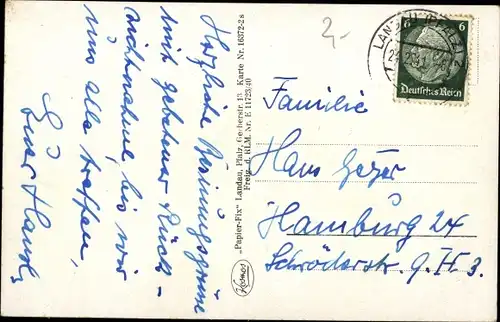 Herzliche Grüsse
mit gebotener Rück-
sichtnahme, bis wir
uns alle treffen,
Euer Hans
"Papier-Fix" Landau, Pfalz, Gerberstr. 13 Karte Nr. 16372-2s
Freig. d. RLM. Nr. E 11723/40
Kosmos
2,-
LANDAU (PFALZ)
6
Deutsches Reich
Familie
Hans Geyer
Hamburg 24
Schröderstr. 9. H 3.